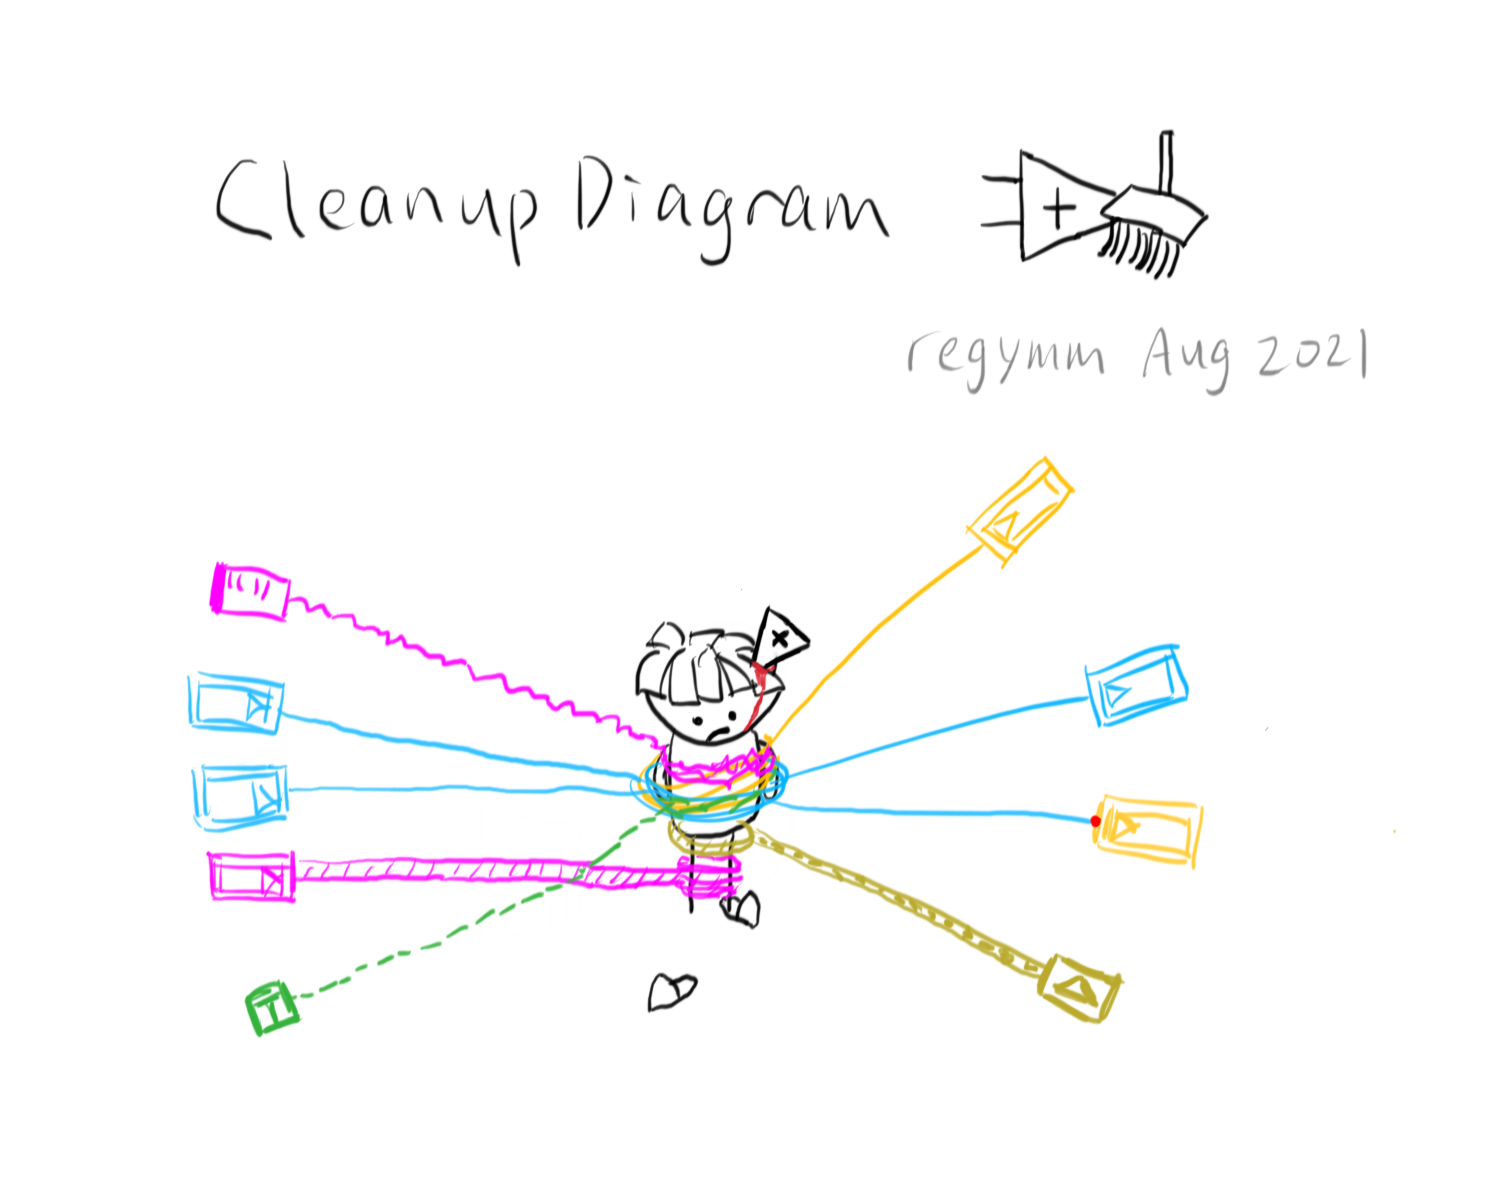 Cleanup Diagram
+
regymm Aug 2021
×
T